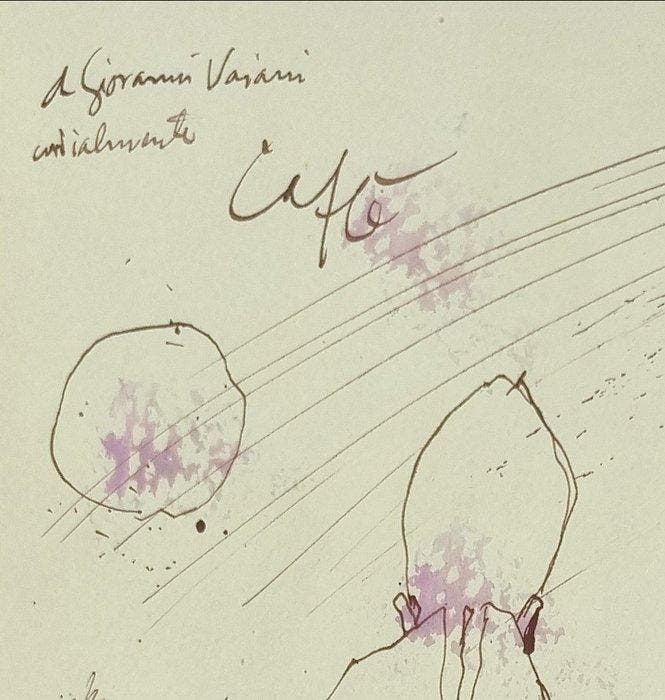 a Giovanni Vaiani
cordialmente
Caffè